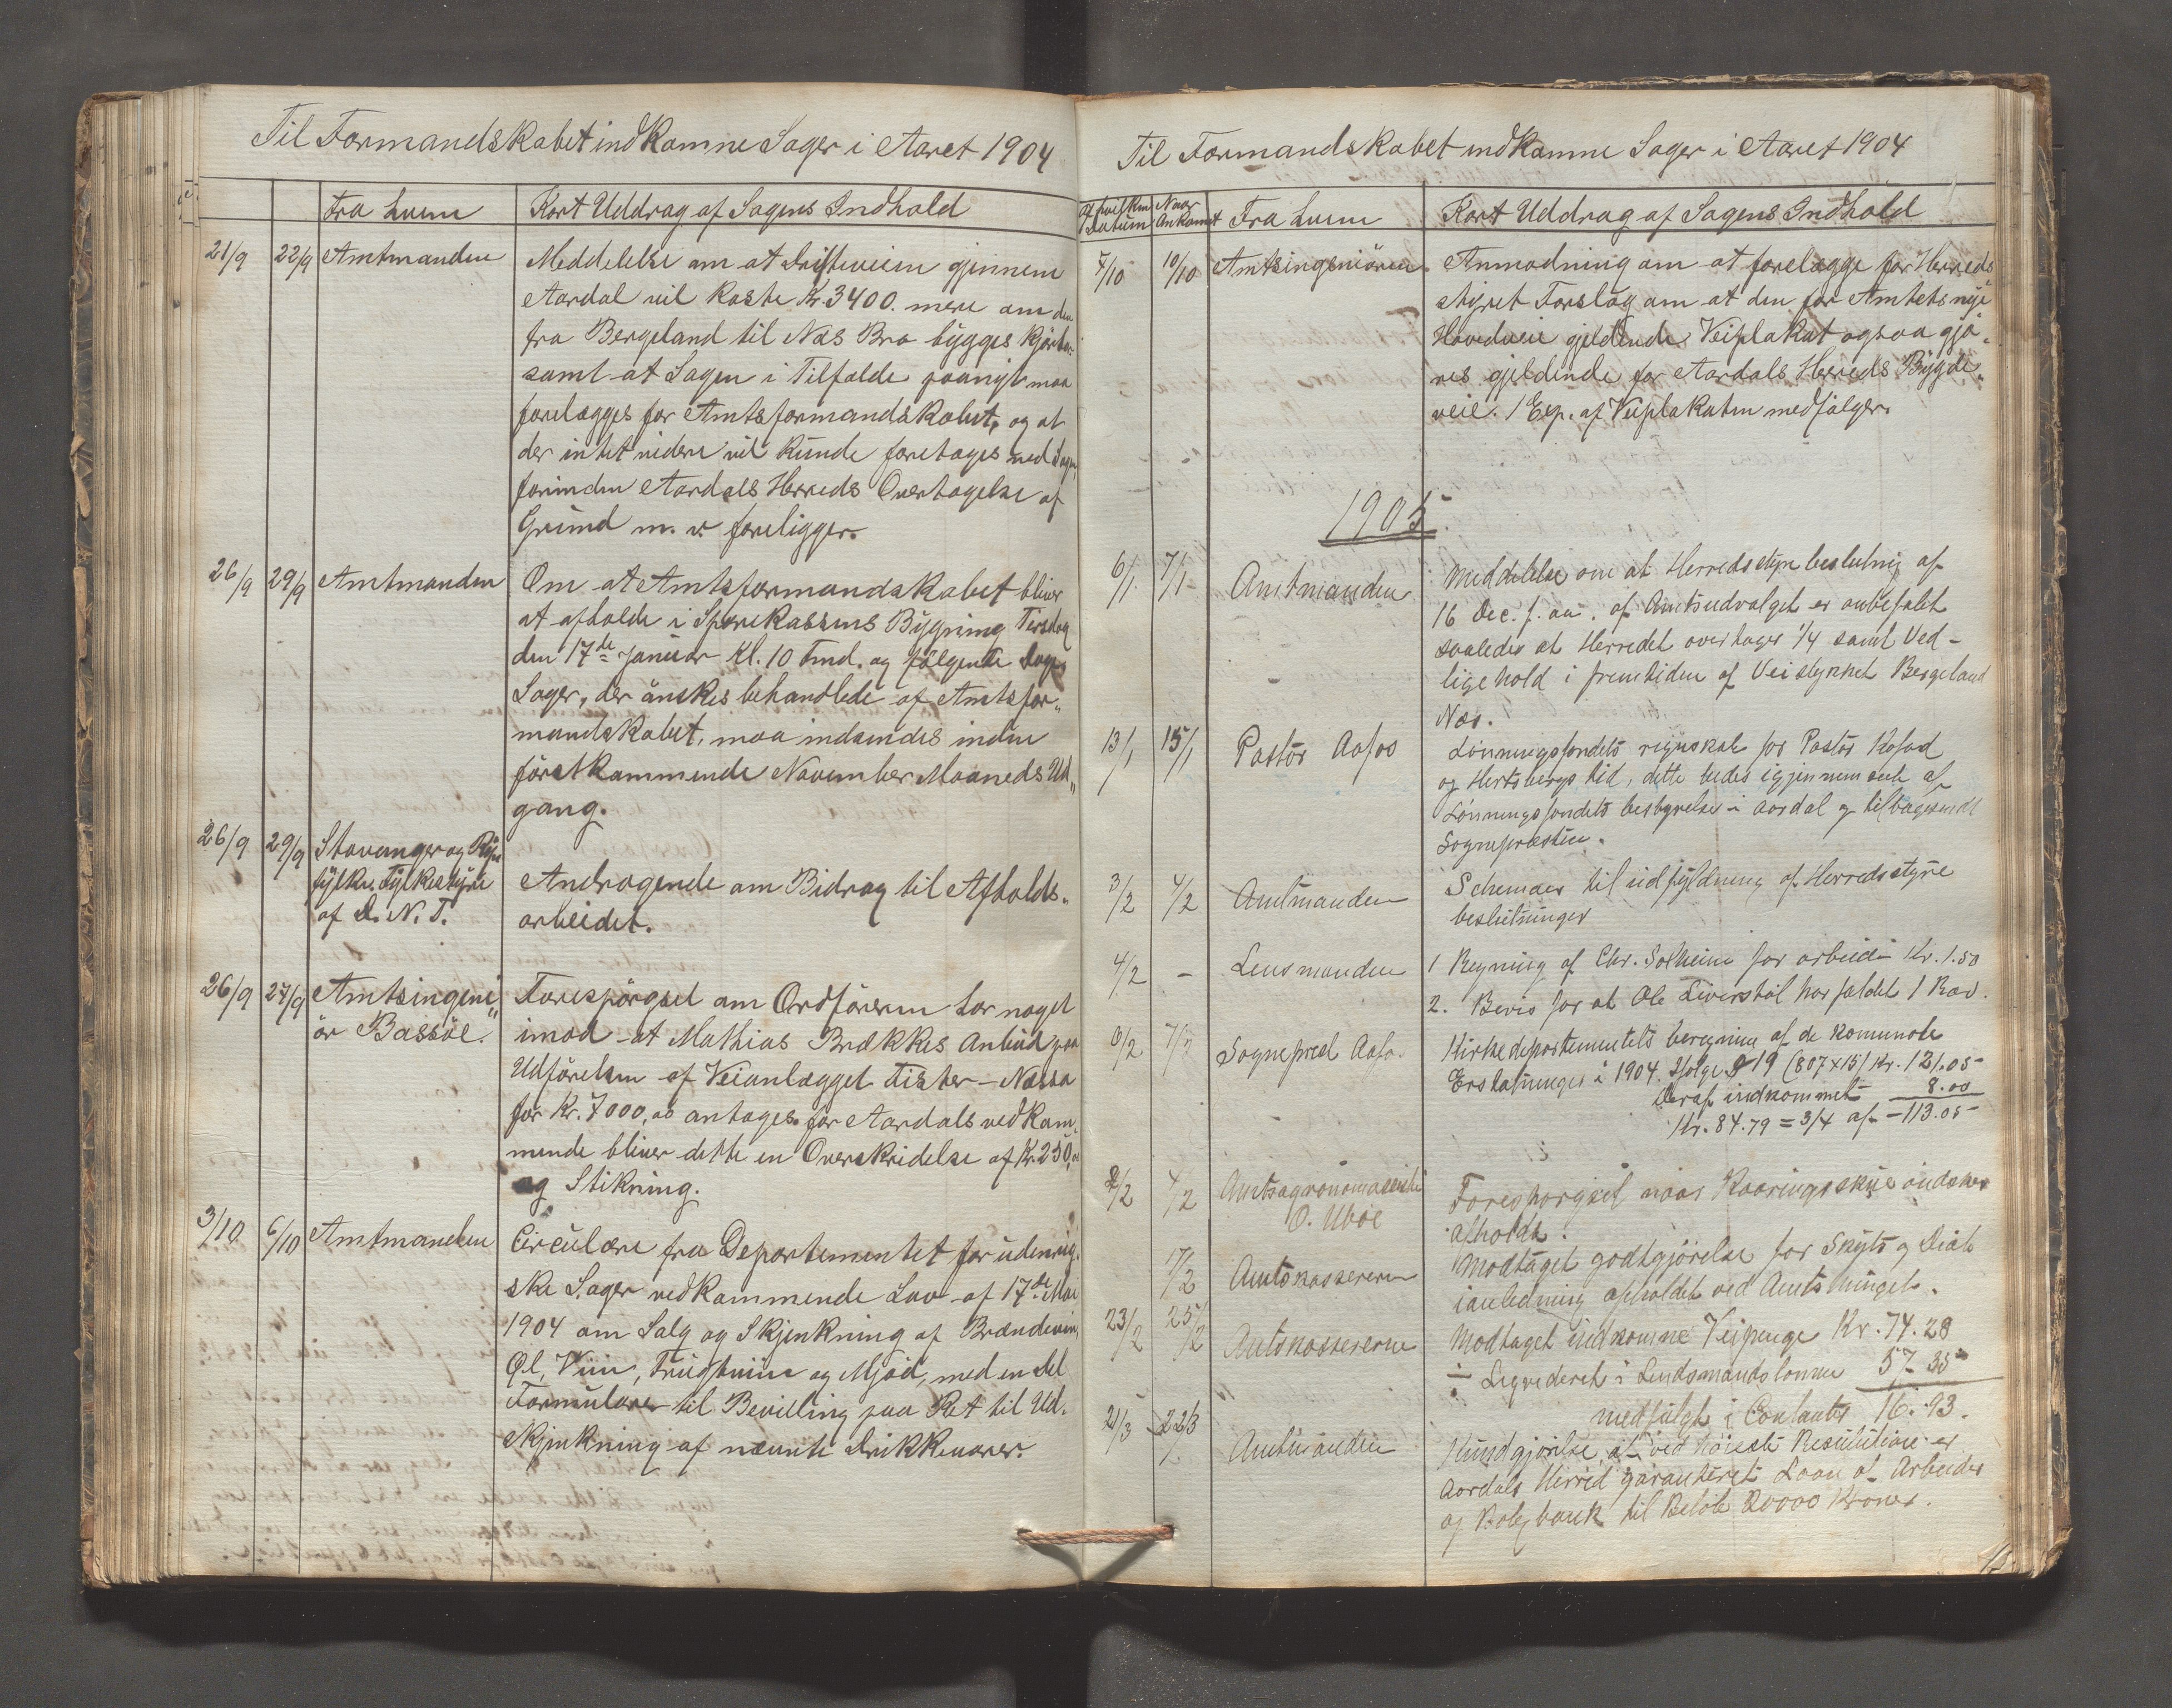 Til Formandskabet indkomne Sager i Aaret 1904
Fra hvem Kort Uddrag af Sagens Indhold
21/9 22/9 Amtmanden Meddelelse om at Drifteveien gjennem
Aardal vil koste Kr 3400. mere om den
fra Bergeland til Næs Bro bygges kjørbar
samt at Sagen i Tilfælde paany maa
forelægges for Amtsformandskabet, og at
der intet videre vil kunde foretages med Sagen,
forinden Aardals Herreds Overtagelse af
Grund m. v. foreligger.
26/9 29/9 Amtmanden Om at Amtsformandskabet bliver
at afholde i Sparekassens Bygning Tirsdag
den 17de Januar Kl. 10 Fmd. og følgende Dage
Sager, der ønskes behandlede af Amtsfor„
mandskabet, maa indsendes inden
førstkommende November Maaneds Ud„
gang.
26/9 29/9 Stavanger og Ryf
fylke, Fylkestyre
af D. N. T.
Andragende om Bidrag til Afholds„
arbeidet.
26/9 27/9 Amtsingeni„
ør Bassøe.
Forespørgsel om Ordføreren har noget
imod at Mathias Brækkes Anbud paa
Udførelsen af Veianlægget Fister – Nessa
for Kr. 7000,00 antages. for Aardals vedkom„
mende bliver dette en Overskridelse af Kr. 250,00
og Stikning.
3/10 6/10 Amtmanden Circulære fra Departementet for udenrig„
ske Sager vedkommende Lov af 17de Mai
1904 om Salg og Skjenkning af Brændevin,
Øl, Viin, Frugtvine og Mjød, med en del
Formularer til Bevilling paa Ret til Ud„
skjenkning af nævnte Drikkevarer.
Til Formandskabet indkomne Sager i Aaret 1904
Af hvilken Datum Naar Ankomst Fra hvem Kort Uddrag af Sagens Indhold
7/10 10/10 Amtsingeniøren. Anmodning om at forelægge for Herreds
styret Forslag om at den for Amtets nye
Hovedveie gjeldende Veiplakat ogsaa gjø„
res gjeldende for Aardals Herreds Bygde„
veie. 1 Exp. af Veiplakaten medfølger.
1905.
6/1 7/1 Amtmanden Meddelelse om at Herredsstyrebeslutnig af
16 Dec. f. aa. af Amtsudvalget er anbefalet
saaledes at Herredet overtager 1/4 samt Ved-
ligehold i fremtiden af Veistykket Bergeland
Næs.
13/1 15/1 Pastor Aafos Lønningsfondets regnskab for Pastor Kofod
og Hertsbergs tid, dette bedes igjennemseet af
Lønningsfondets bestyrelse i Aardal og tilbagesendt
Sognepræsten.
3/2 4/2 Amtmanden Schemaer til udfyldning af Herredsstyre
beslutninger
4/2 – Lensmanden 1 Regning af Chr. Solheim for arbeide Kr. 1.50
2. Bevis for at Ole Liverstøl har fældet 1 Ræv.
6/2 7/2 Sognepræst Aafos. Kirkedepartementets beregning af de komunale
Erstatninger i 1904. Ifølge § 19 (807 x 15) Kr. 121.05
Deraf indkommet 8.00
Kr. 84.79 = 3/4 af – 113.05
2/2 4/2 Amtsagronomassistent
O. Uboe
Forespørgsel naar Kaaringsskue ønskes
afholdt.
17/2 Amtskassereren Modtaget godtgjørelse for Skyts og Diæt
ianledning opholdet ved Amtsthinget.
23/2 25/2 Amtskassereren Modtaget indkomne Veipenge Kr. 74.28
÷ Liqvideret i Lendsmandslønnen 57.35
medfølgt i Contanter 16.93.
21/3 22/3 Amtmanden Kundgjørelse at ved høieste Resulution er
Aardals Herred garanteret Laan af Arbeider
og Boligbank til Beløb 20000 Kroner.